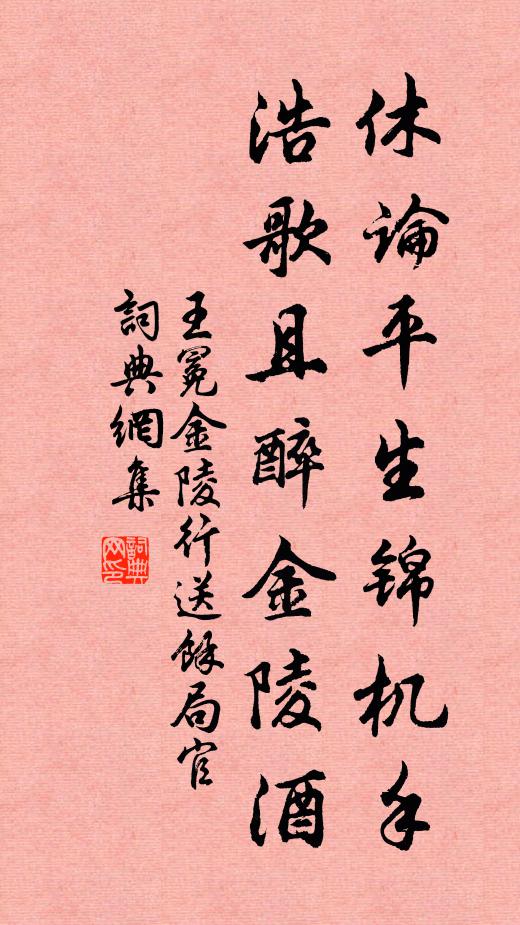 休论平生锦机手
浩歌且醉金陵酒
王冕金陵行送馀局官
詞典網集
詞典网印